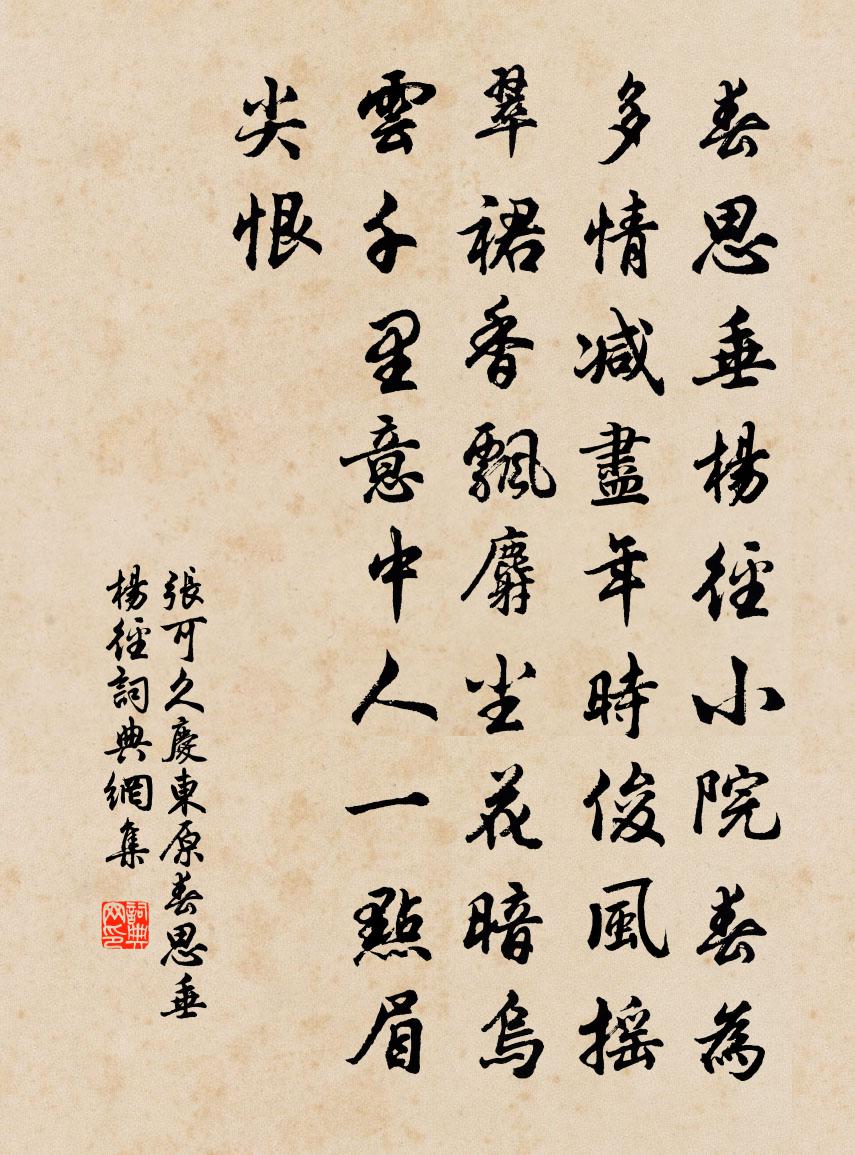 春思垂楊徑小院春為
多情減盡年時俊風搖
翠裙香飄麝尘花暗烏
雲千里意中人一點眉
尖恨
張可久慶東原春思垂
楊徑詞典網集
詞典网印